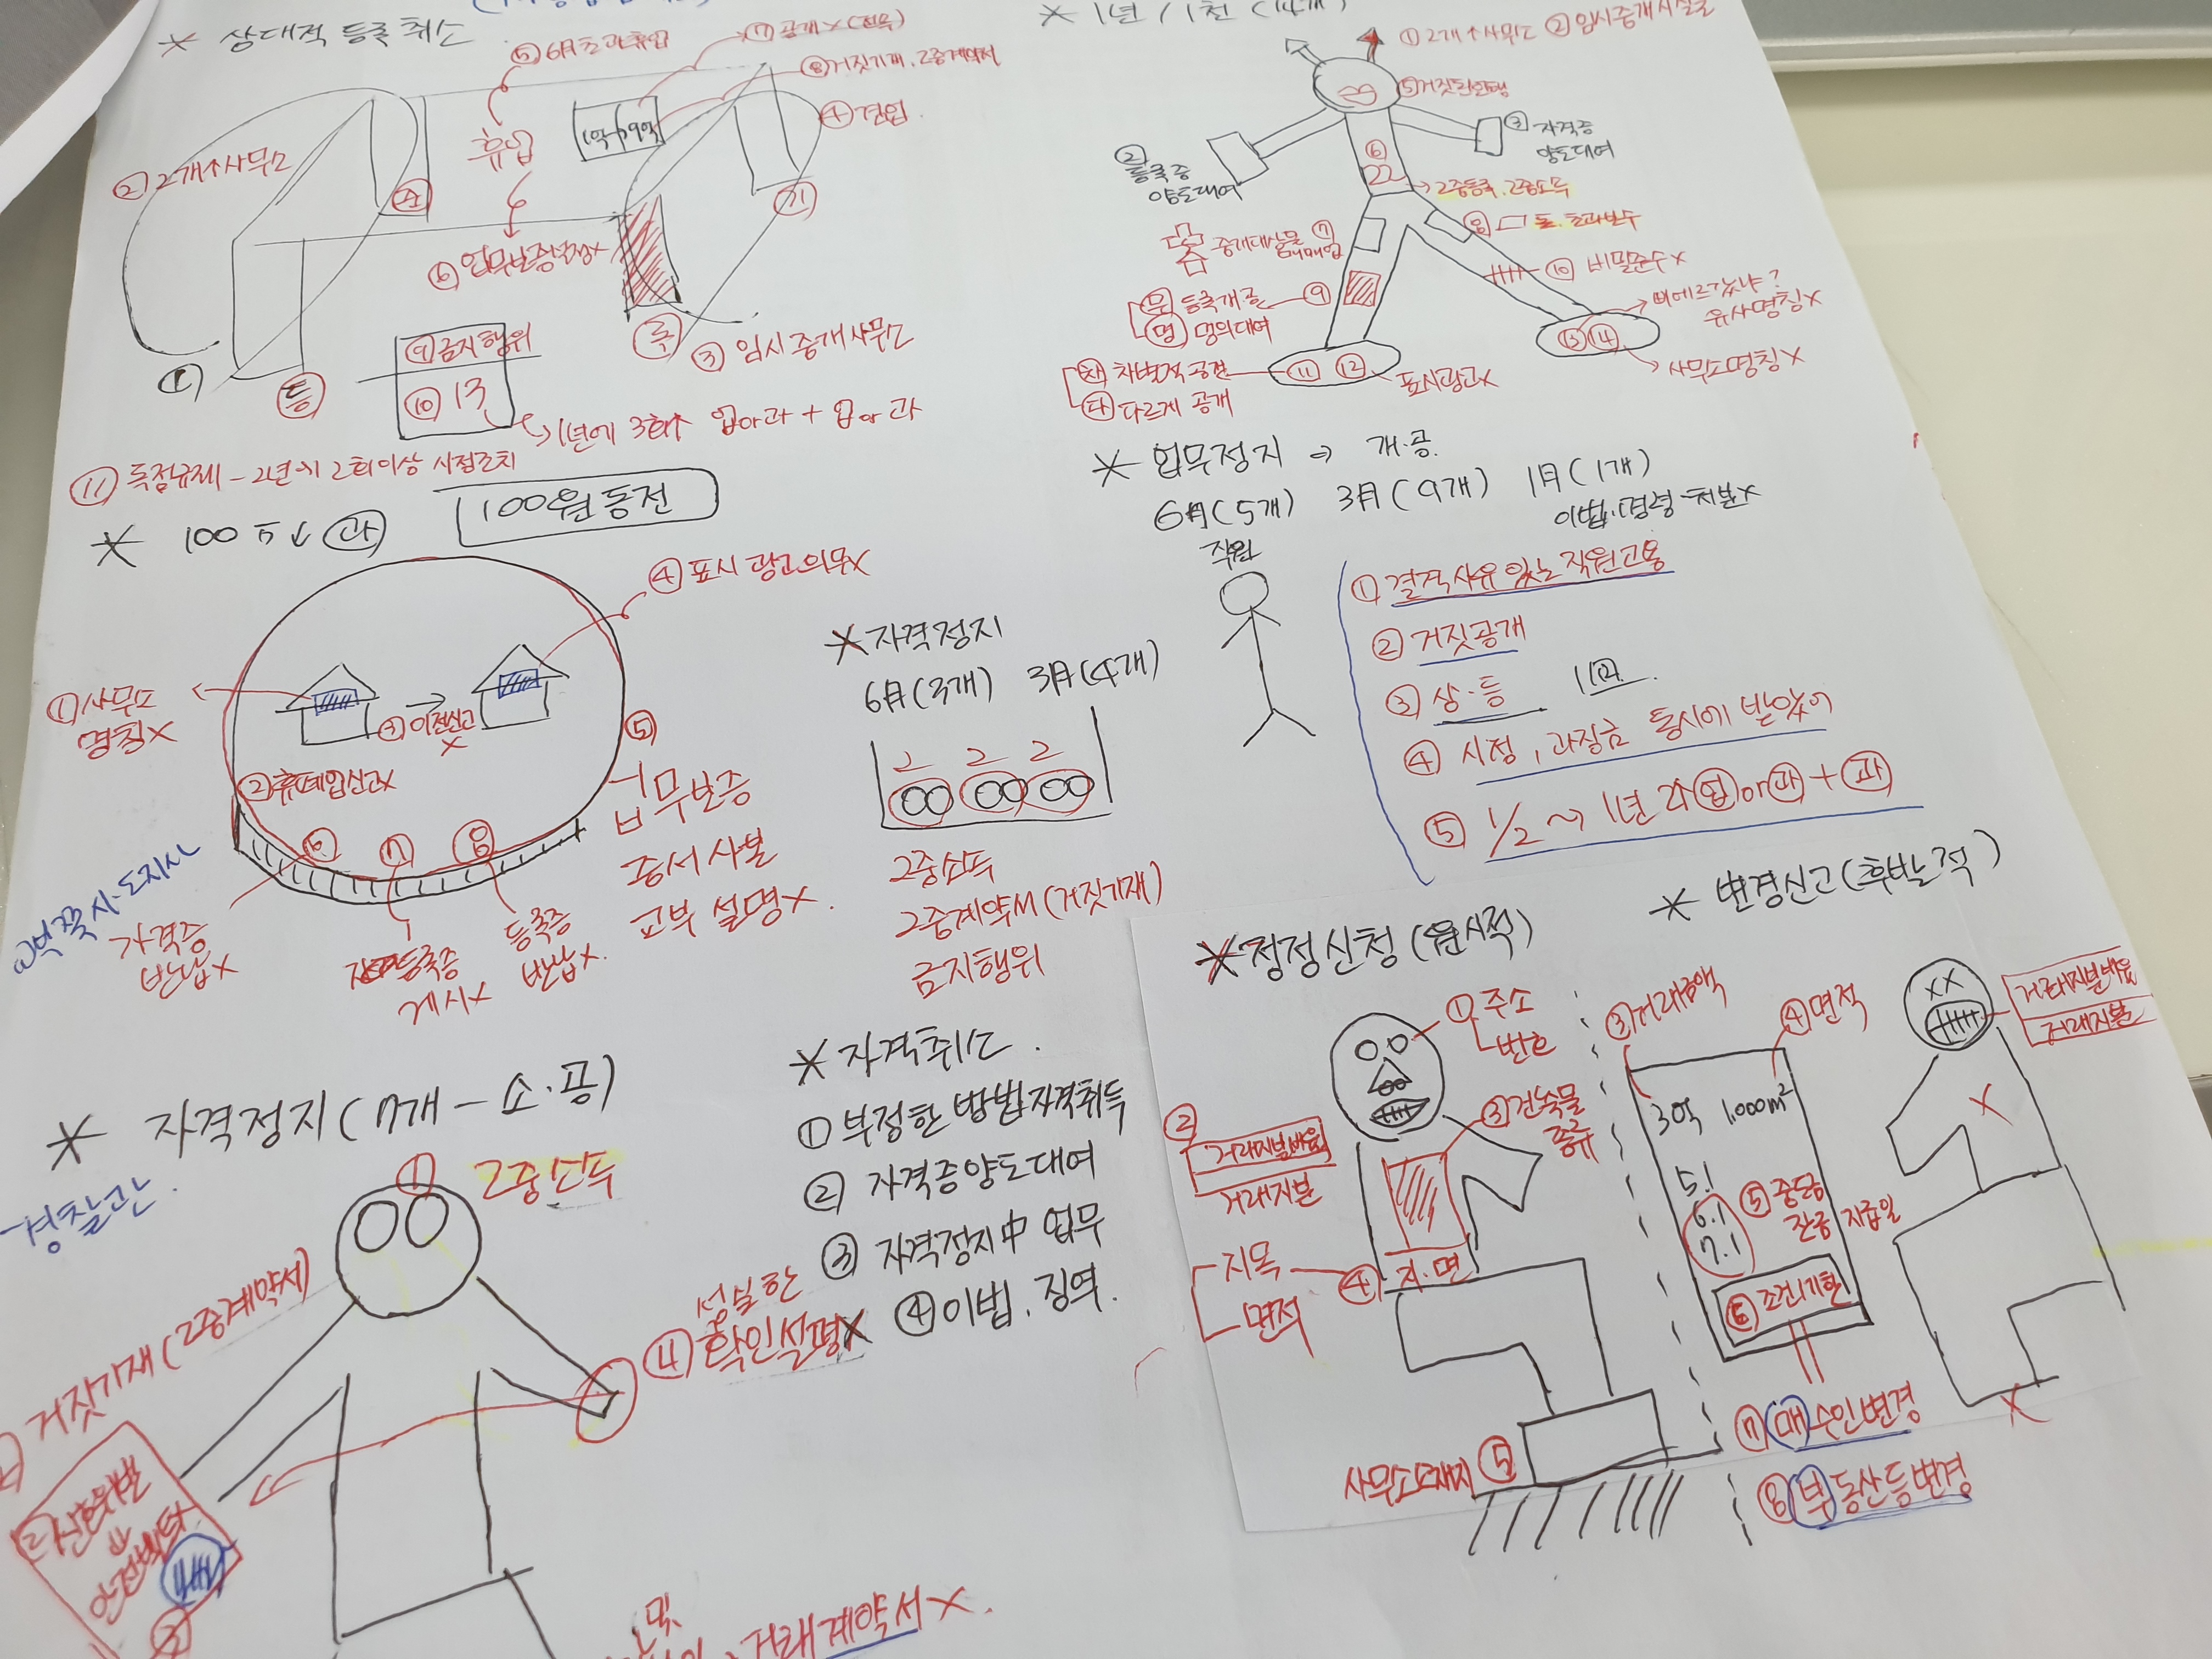 * 상대적 등록취소
⑤ 6月초과휴업
⑦ 공개 X (전유)
⑧ 거짓기재. 2중계약서
④ 겸업
② 2개↑사무소
휴업
⑥ 업무보증설정X
③ 임시중개사무소
⑨ 금지행위
⑩ 13
→ 1년에 3회↑ 업or과 + 업or과
⑪ 독점규제 - 2년에 2회이상 시정조치
* 1년 / 1천 (14개)
① 2개↑사무소 ② 임시중개시설물
③ 자격증
양도대여
② 등록증
양도대여
⑥
22
→ 2중등록. 2중소속
중개대상물 ⑦
매매업
돈. 초과보수
⑩ 비밀준수X
무 등록개공 ⑨
명 명의대여
⑬ ⑭
유사명칭X
사무소명칭X
차 차별적 공권
다 다르게 공개
⑪ ⑫
표시광고X
* 100万↓ 과
100원 동전
④ 표시광고의무X
① 사무소
명칭X
③ 이전신고
X
② 휴폐업신고X
⑤
업무보증
증서사본
교부 설명X.
⑥ ⑦ ⑧
자격증
반납X
등록증
게시X
등록증
반납X.
* 업무정지 ⇒ 개.공
6月(5개) 3月(9개) 1月(1개)
이법.명령.처분X
직원
① 결격사유 있는 직원고용
② 거짓공개
③ 상.등 1回.
④ 시정, 과징금 동시에 받았어
⑤ 1/2 ~ 1년 각 업 or 과 + 과
* 자격정지
6月(3개) 3月(4개)
2 2 2
2중소속
2중계약서(거짓기재)
금지행위
* 자격정지 (7개 - 소.공)
경찰관.
① 2중소속
거짓기재(2중계약서)
성실한
④ 확인설명X
거래계약서X.
* 자격취소.
① 부정한 방법 자격취득
② 자격증양도대여
③ 자격정지中 업무
④ 이법. 징역.
* 정정신청 (원시적)
① 주소
번호
②
거래지분비율
거래지분
③ 건축물
종류
지목
면적
④ 지.면
사무소소재지 ⑤
* 변경신고 (후발적)
③ 거래금액
④ 면적
3억 1.000㎡
5.1
6.1
7.1
⑤ 중도금
잔금 지급일
⑥ 조건/기한
⑦ 매수인변경
⑧ 부동산등변경
거래지분비율
거래지분